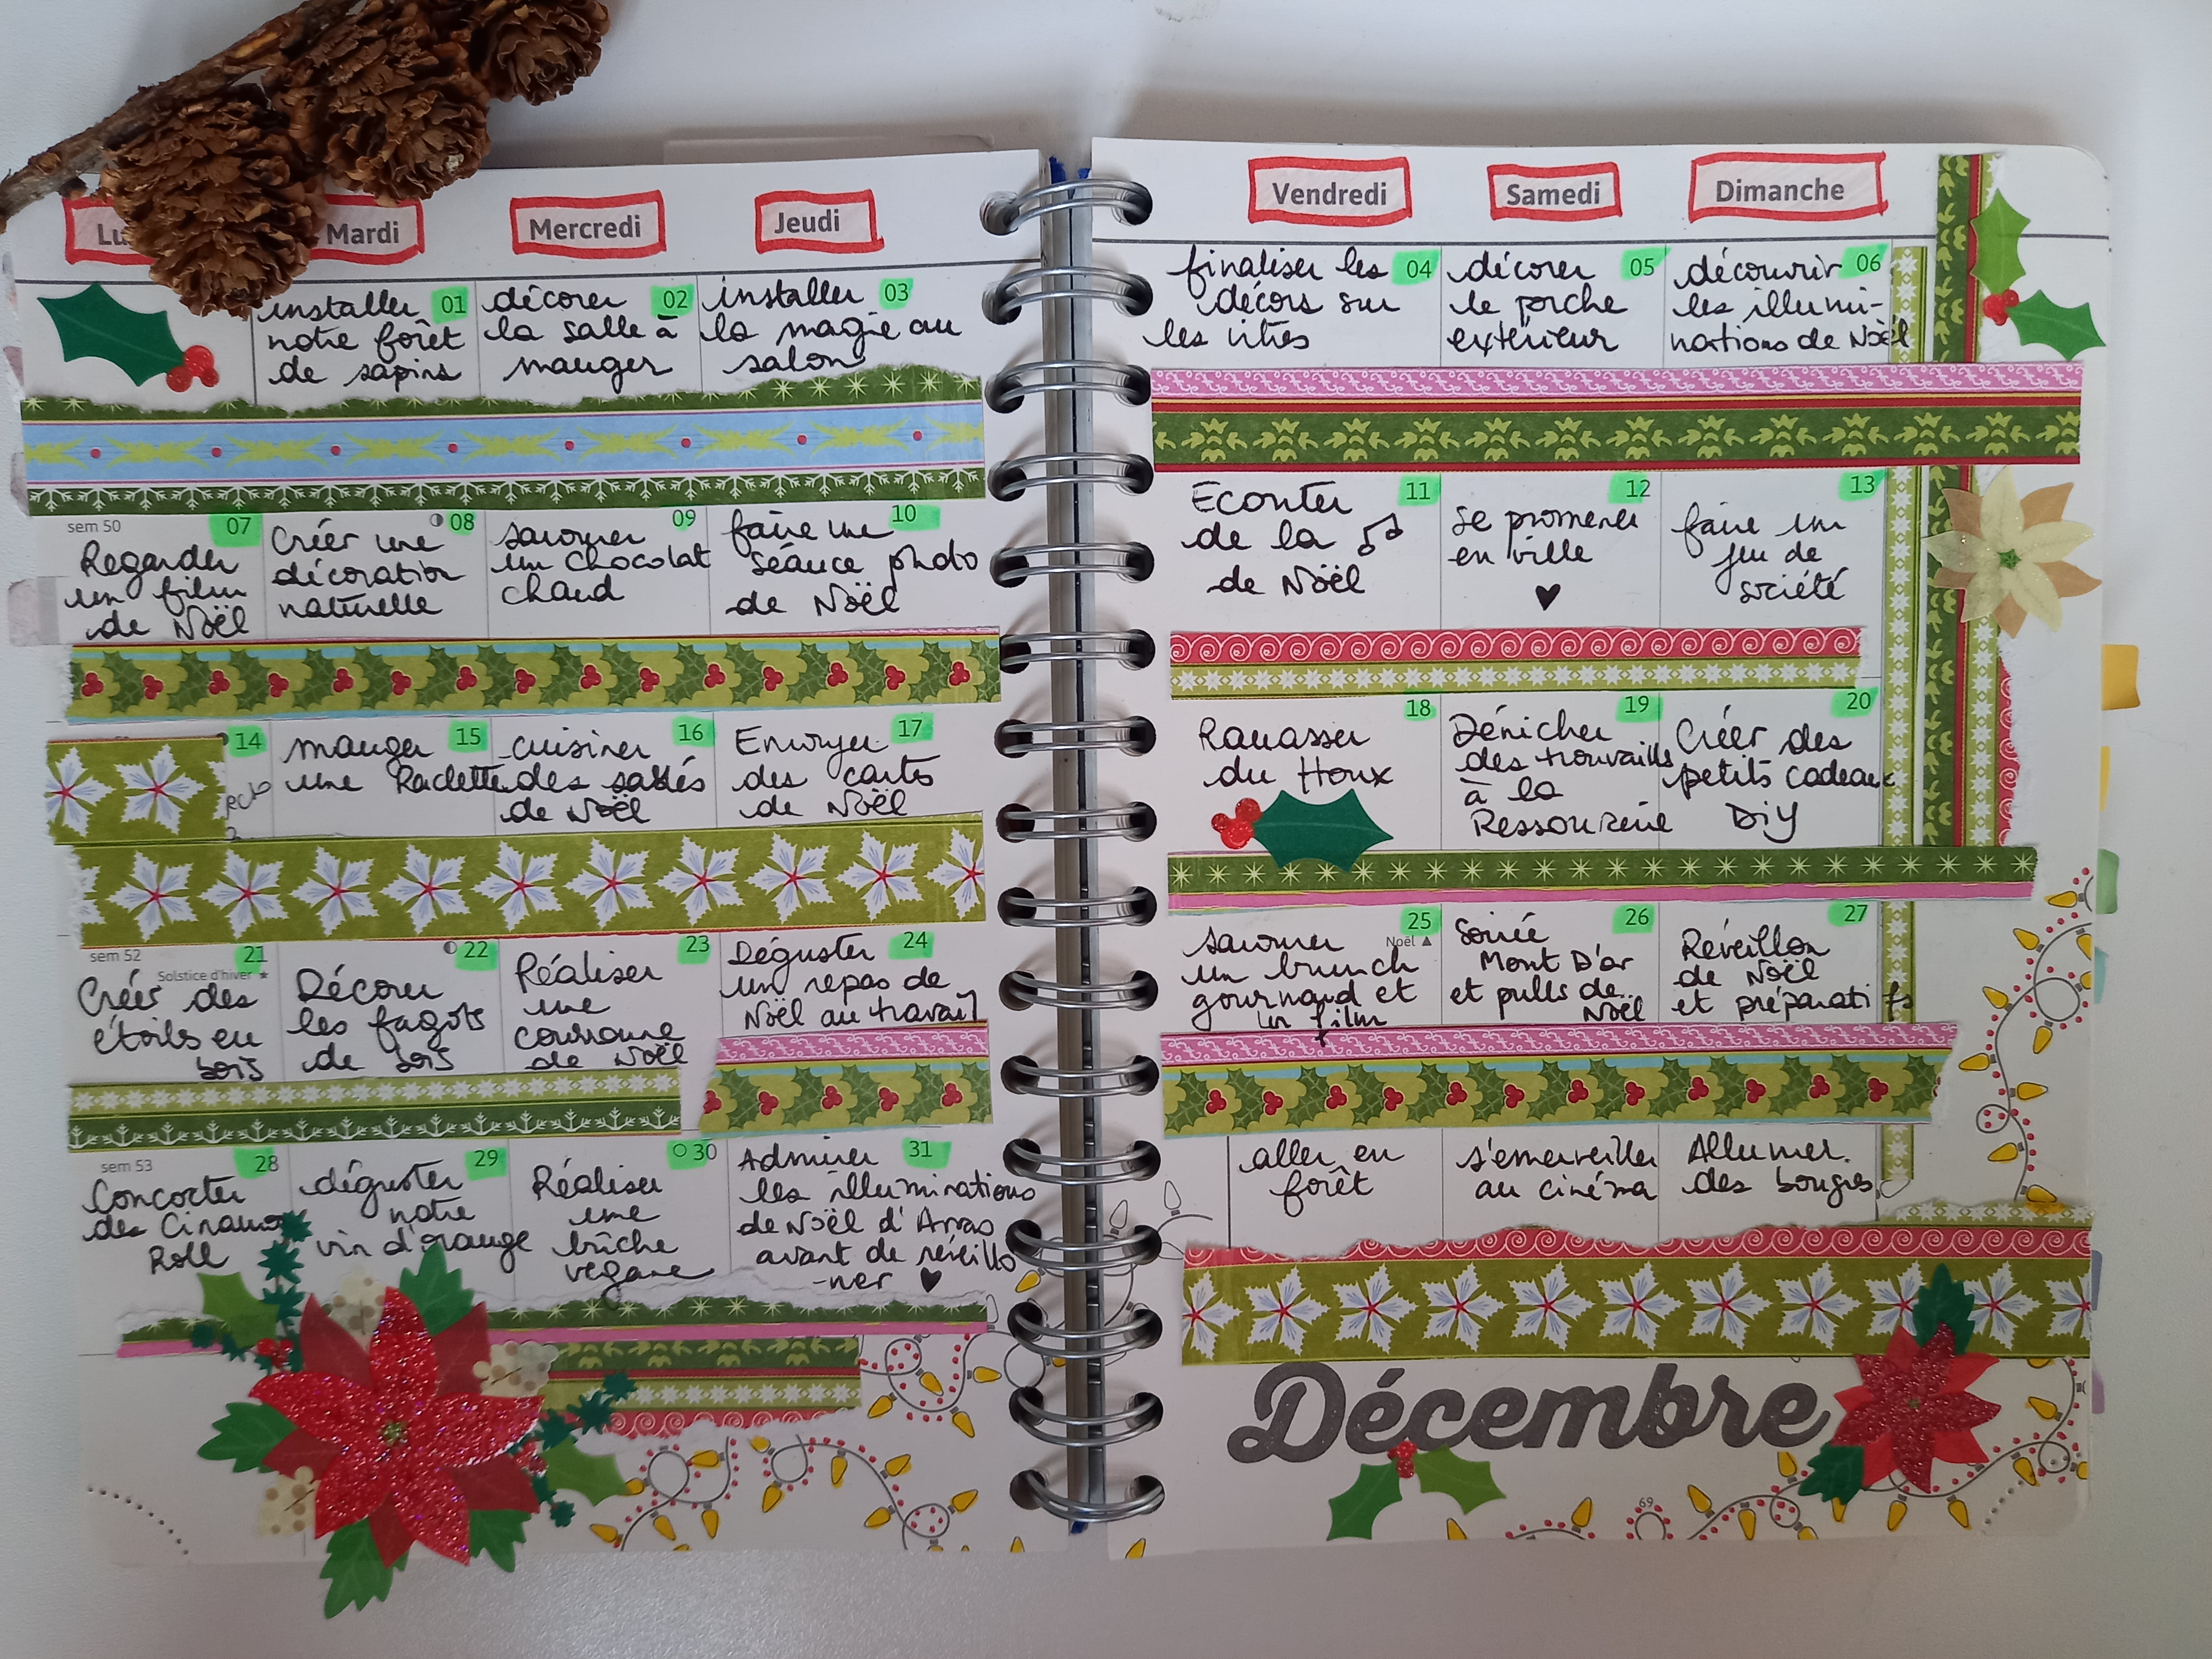 Mardi
Mercredi
Jeudi
Vendredi
Samedi
Dimanche
01
installer
notre forêt
de sapins
02
décorer
la salle à
manger
03
installer
la magie au
salon
04
finaliser les
décors sur
les vitres
05
décorer
le porche
extérieur
06
découvrir
les illumi-
nations de Noël
sem 50
07
Regarder
un film
de Noël
08
Créer une
décoration
naturelle
09
savourer
un chocolat
chaud
10
faire une
séance photo
de Noël
11
Ecouter
de la ♫
de Noël
12
se promener
en ville
♥
13
faire un
jeu de
société
14
15
manger
une Raclette
16
cuisiner
des sablés
de Noël
17
Envoyer
des cartes
de Noël
18
Ramasser
du Houx
19
Dénicher
des trouvailles
à la
Ressourcerie
20
Créer des
petits cadeaux
DiY
sem 52
21
Solstice d'hiver ★
Créer des
étoiles en
bois
22
Décorer
les fagots
de bois
23
Réaliser
une
couronne
de Noël
24
Déguster
un repas de
Noël au travail
25
Noël ▲
savourer
un brunch
gourmand et
un film
26
Soirée
Mont D'or
et pulls de
Noël
27
Réveillon
de Noël
et préparatifs
sem 53
28
Concocter
des Cinamon
Roll
29
déguster
notre
vin d'orange
30
Réaliser
une
bûche
végane
31
Admirer
les illuminations
de Noël d'Arras
avant de réveillo
-ner ♥
aller en
forêt
s'émerveiller
au cinéma
Allumer
des bougies
Décembre
69